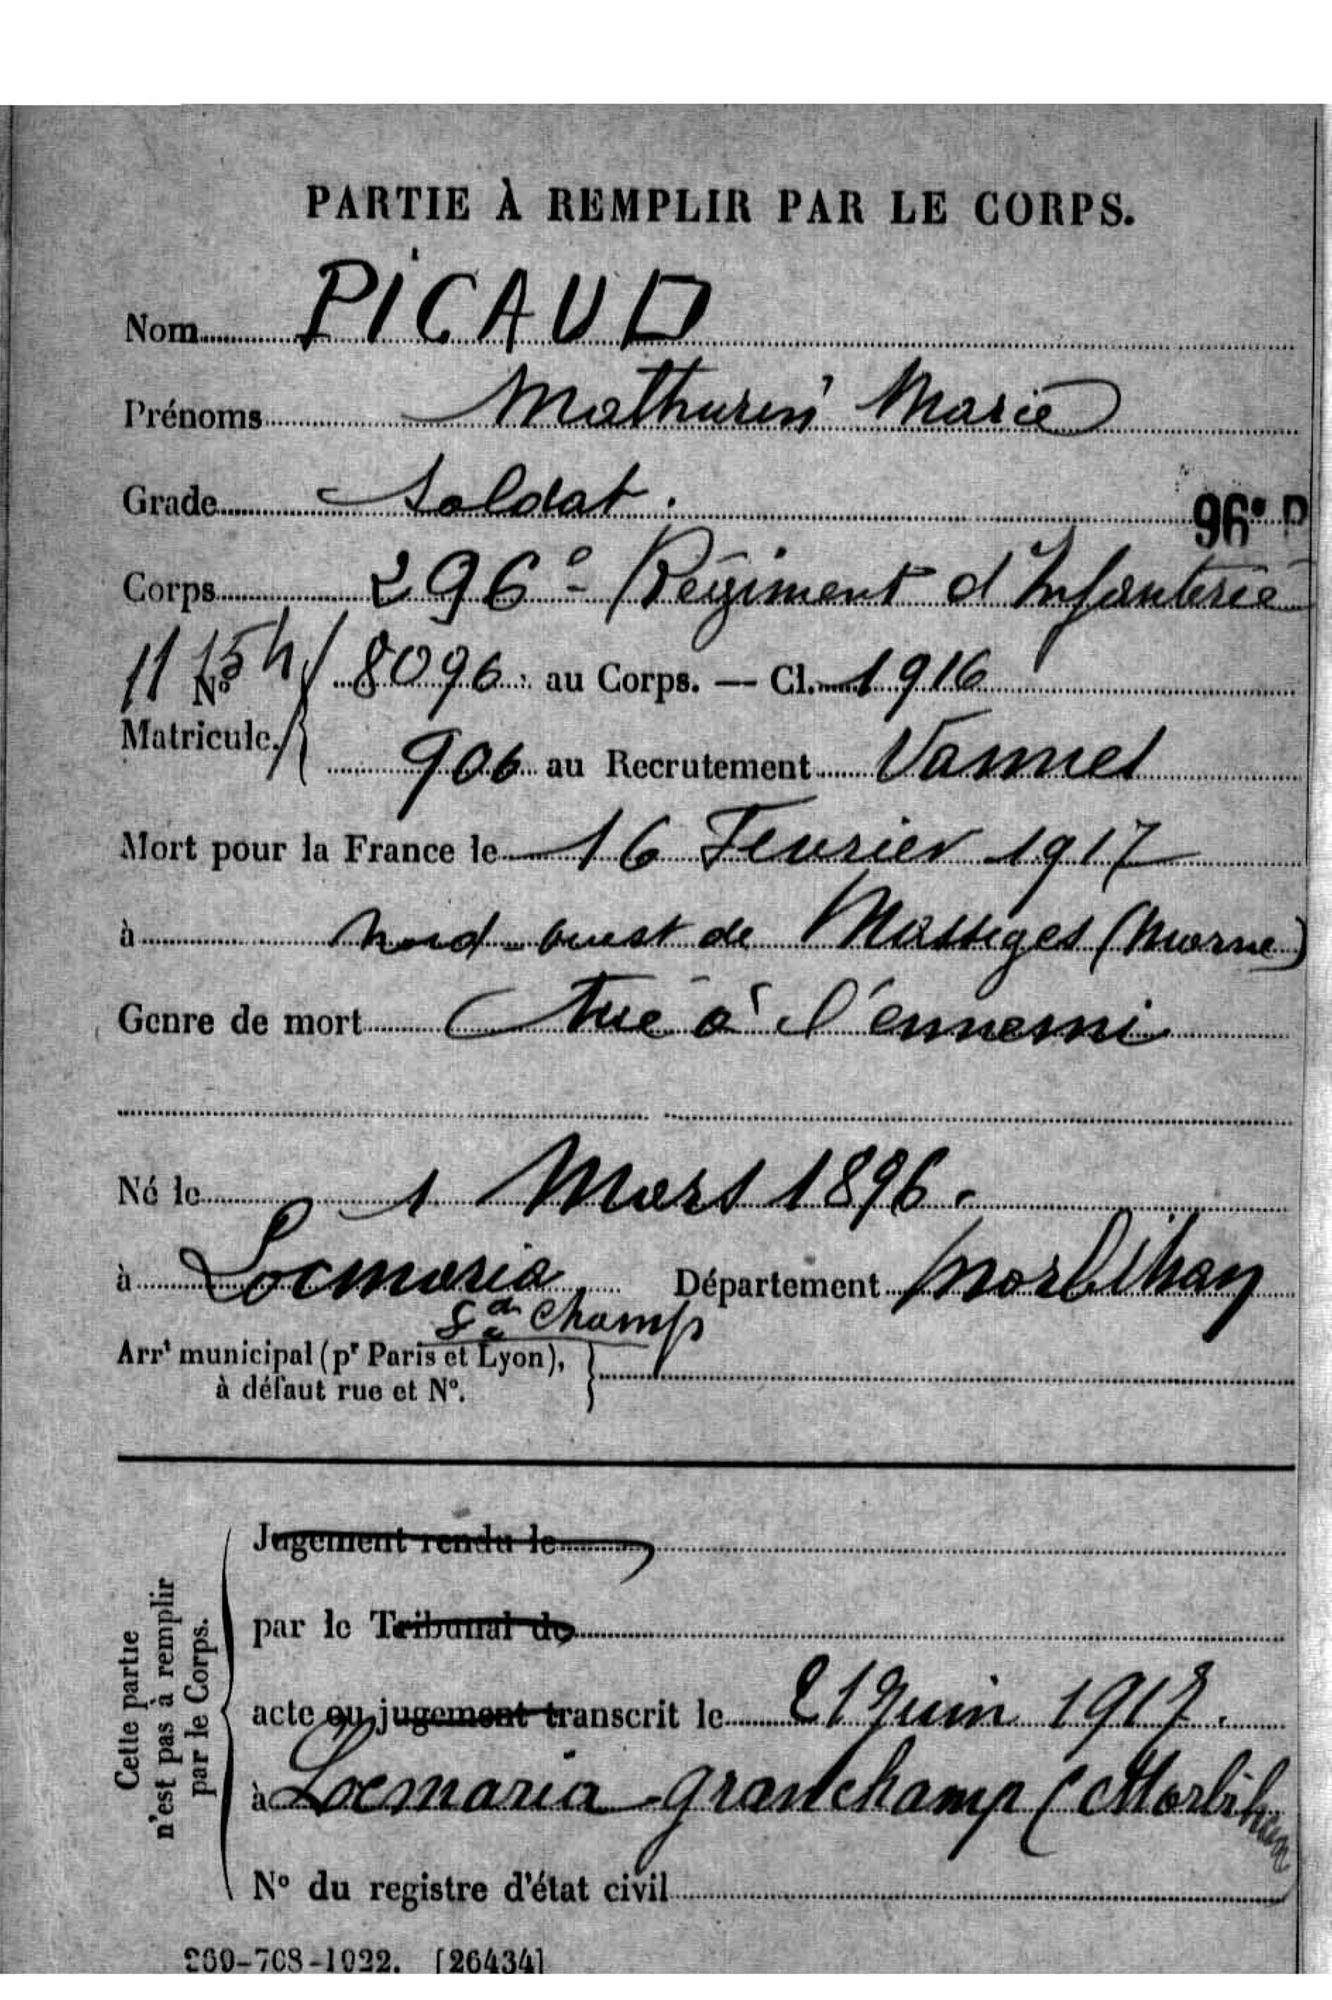 PARTIE À REMPLIR PAR LE CORPS.
Nom PICAUD
Prénoms Mathurin Marie
Grade Soldat.
96e
Corps 296e Régiment d'Infanterie
11 15h
No Matricule. 8096 au Corps. — Cl. 1916
906 au Recrutement Vannes
Mort pour la France le 16 Fevrier 1917
à nord-ouest de Massiges (Marne)
Genre de mort tué à l'ennemi
Né le 1 Mars 1896.
à Locmaria Département Morbihan
Gd Champ
Arrt municipal (pr Paris et Lyon),
à défaut rue et No.
Cette partie
n'est pas à remplir
par le Corps.
Jugement rendu le
par le Tribunal de
acte ou jugement transcrit le 21 Juin 1917.
à Locmaria-granchamp (Morbihan
No du registre d'état civil
260-708-1922. [26434]